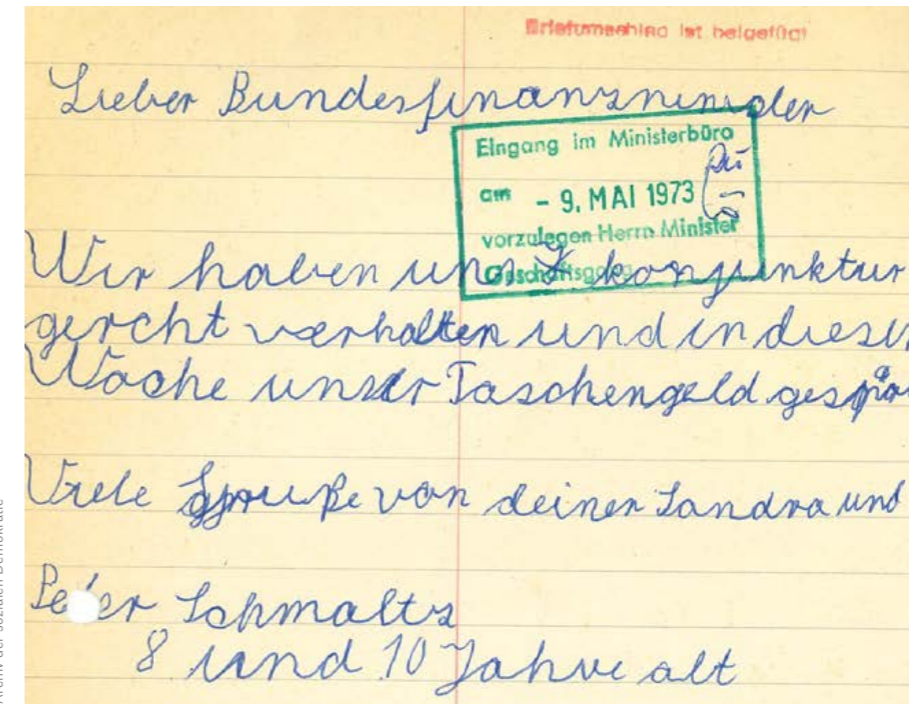 Briefumschlag ist beigefügt
Lieber Bundesfinanzminister
Eingang im Ministerbüro
am - 9. MAI 1973
vorzulegen Herrn Minister
Geschäftsgang
Wir haben uns konjunktur
gercht verhalten und in diesen
Woche unser Taschengeld gespar
Viele Gruße von deiner Sandra und
Peter Schmaltz
8 und 10 Jahre alt
Archiv der sozialen Demokratie